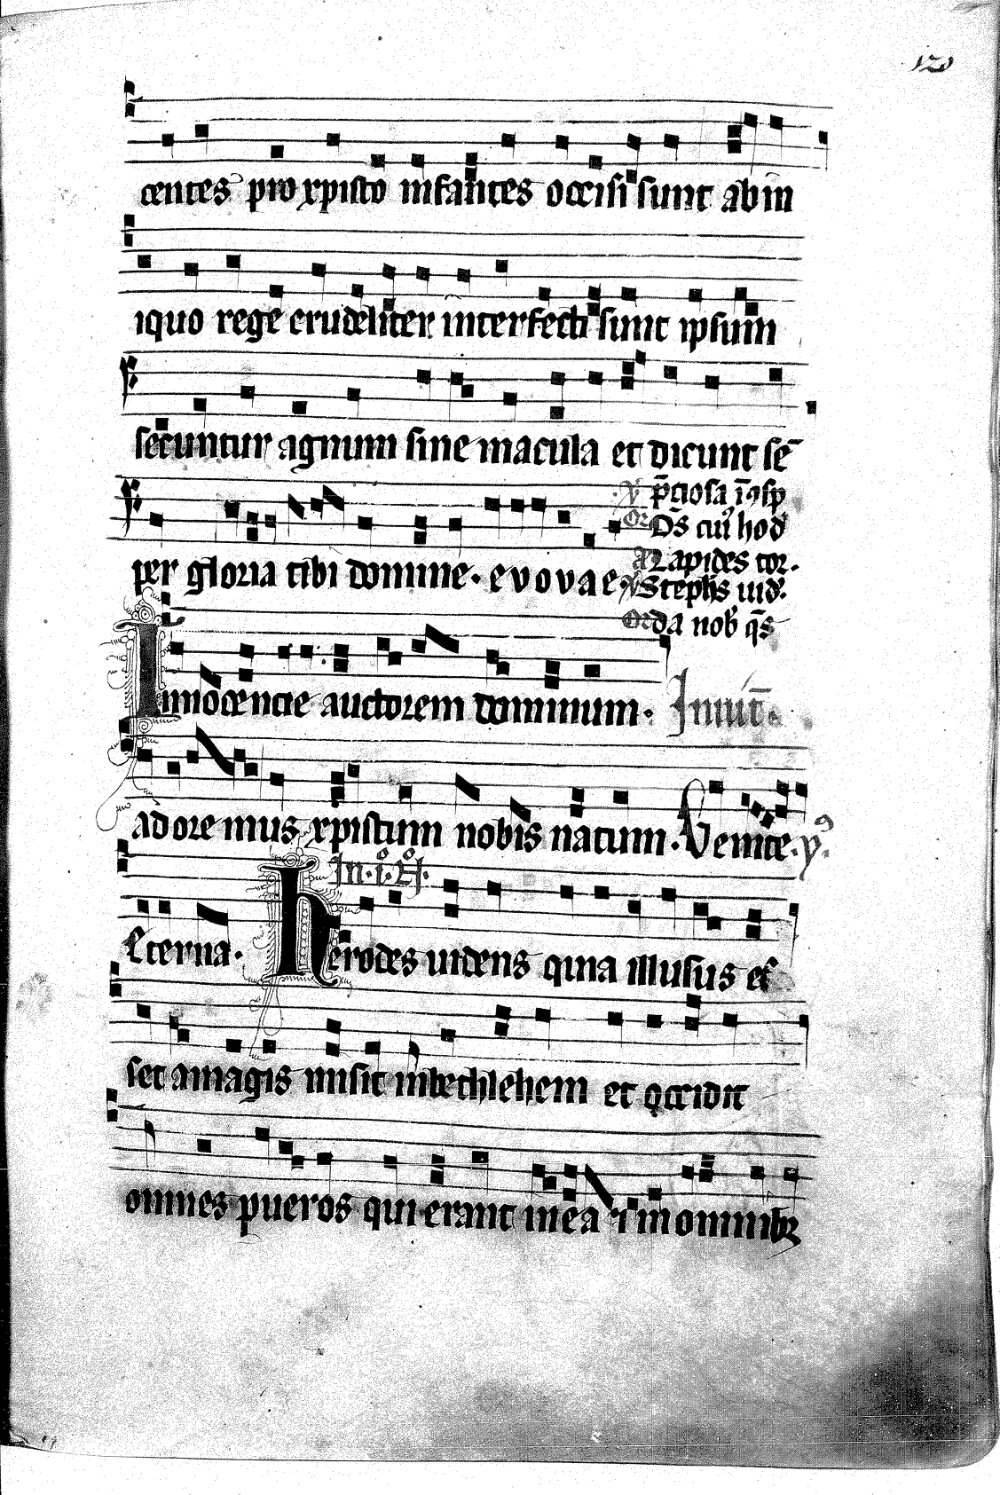 120
centes pro xpisto infantes occisi sunt ab in
iquo rege crudeliter interfecti sunt ipsum
secuntur agnum sine macula et dicunt sē
p̄ciosa ī ꝯsp
per gloria tibi domine. evovae
Or D̄s cuiꝰ hod
A Lapides tor.
Stephs uid.
Or da nob q̄s
Innocencie auctorem dominum. Inuit̄
adoremus xpistum nobis natum. Venite. yꝰ.
Eterna. In. i. N.
herodes uidens quia illusus es
set a magis misit in bethlehem et occidit
omnes pueros qui erant in ea ⁊ in omnibꝫ